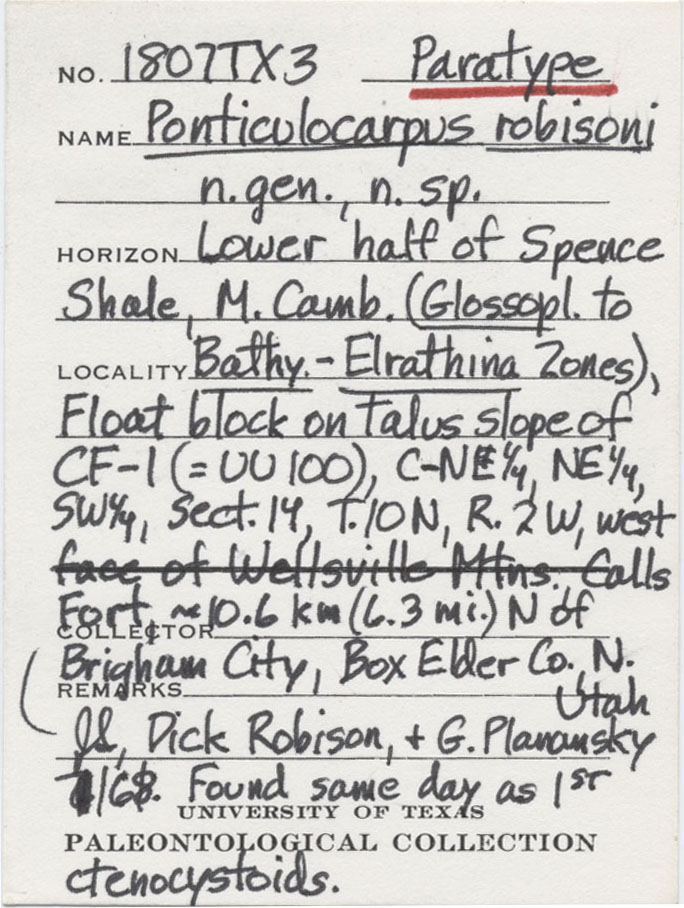 NO. 1807TX3 Paratype
NAME Ponticulocarpus robisoni
n.gen., n. sp.
HORIZON Lower half of Spence
Shale, M. Camb. (Glossopl. to
LOCALITY Bathy.-Elrathina Zones),
Float block on talus slope of
CF-1 (= UU 100), C-NE¼, NE¼,
SW¼, Sect. 14, T.10N, R. 2W, west
face of Wellsville Mtns. Calls
Fort, ~10.6 km (6.3 mi.) N of
COLLECTOR
Brigham City, Box Elder Co., N.
REMARKS
Utah
Dick Robison, + G. Planansky
Found same day as 1st
UNIVERSITY OF TEXAS
PALEONTOLOGICAL COLLECTION
ctenocystoids.